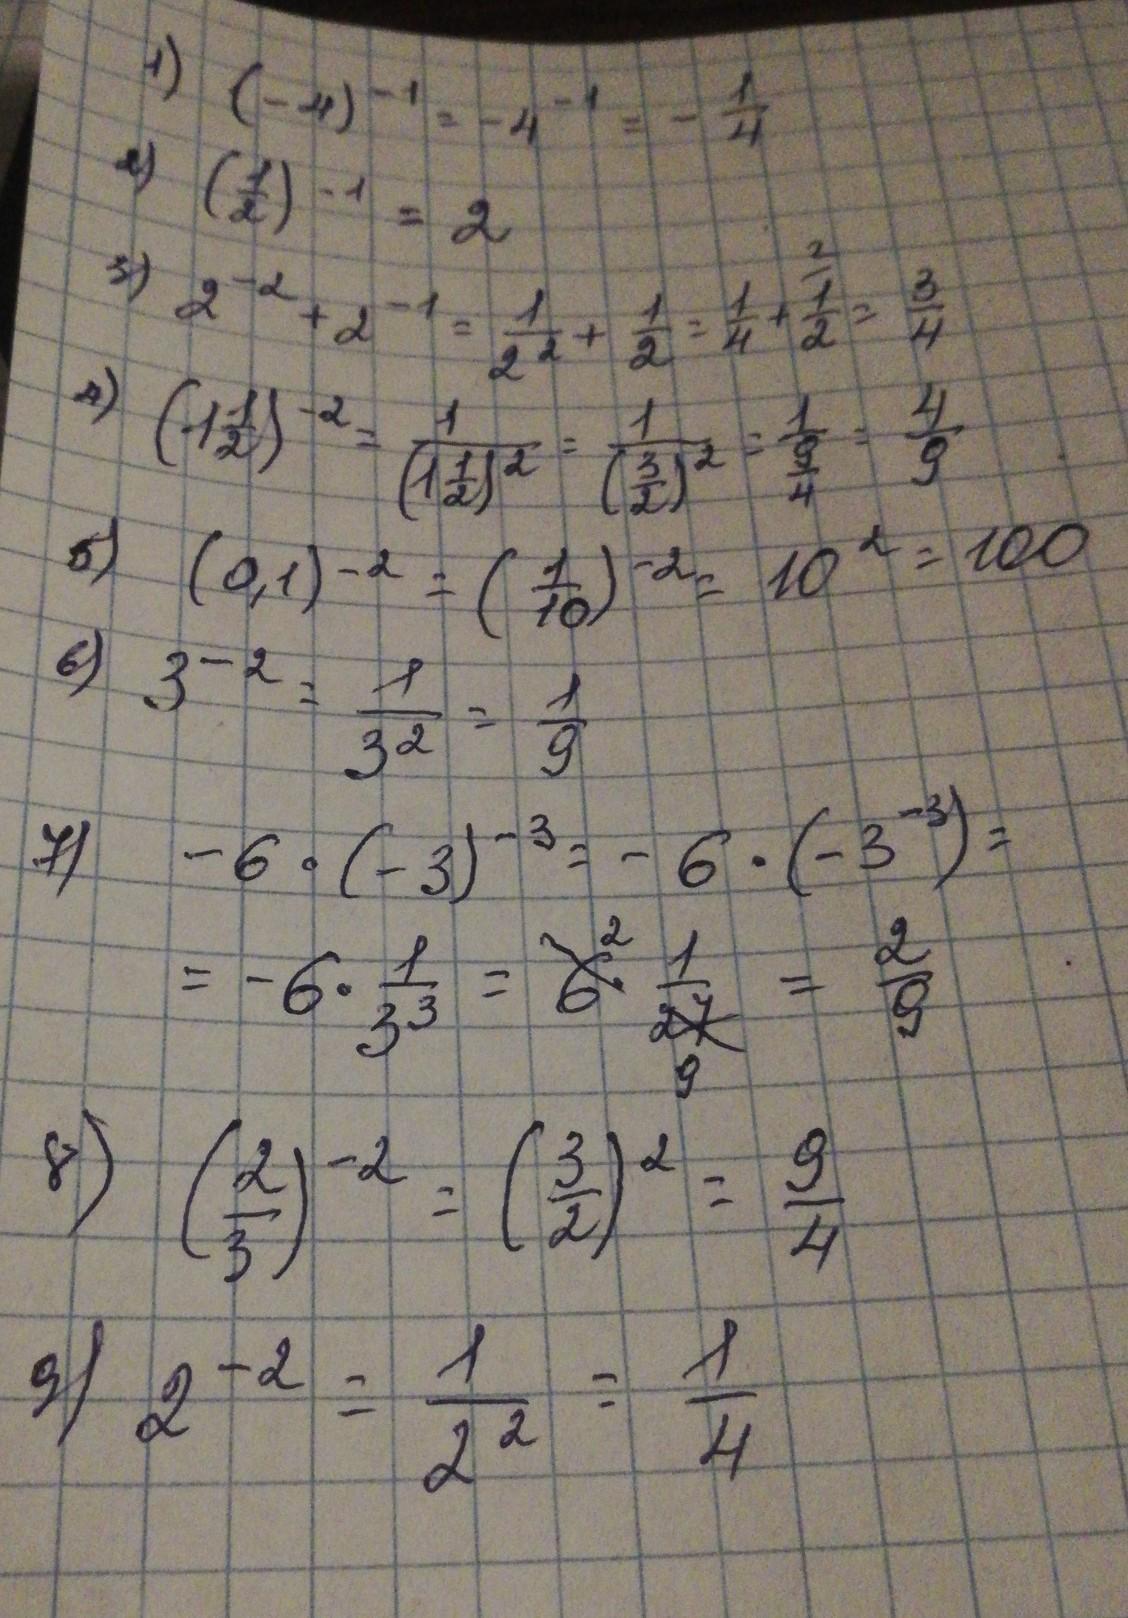 1) (-4)^{-1} = -4^{-1} = -\frac{1}{4}
2) (\frac{1}{2})^{-1} = 2
3) 2^{-2} + 2^{-1} = \frac{1}{2^2} + \frac{1}{2} = \frac{1}{4} + \overset{2}{\frac{1}{2}} = \frac{3}{4}
4) (1\frac{1}{2})^{-2} = \frac{1}{(1\frac{1}{2})^2} = \frac{1}{(\frac{3}{2})^2} = \frac{1}{\frac{9}{4}} = \frac{4}{9}
5) (0,1)^{-2} = (\frac{1}{10})^{-2} = 10^2 = 100
6) 3^{-2} = \frac{1}{3^2} = \frac{1}{9}
7) -6 · (-3)^{-3} = -6 · (-3^{-3}) =
= -6 · \frac{1}{3^3} = \cancel{6}^2 · \frac{1}{\cancel{27}_9} = \frac{2}{9}
8) (\frac{2}{3})^{-2} = (\frac{3}{2})^2 = \frac{9}{4}
9) 2^{-2} = \frac{1}{2^2} = \frac{1}{4}